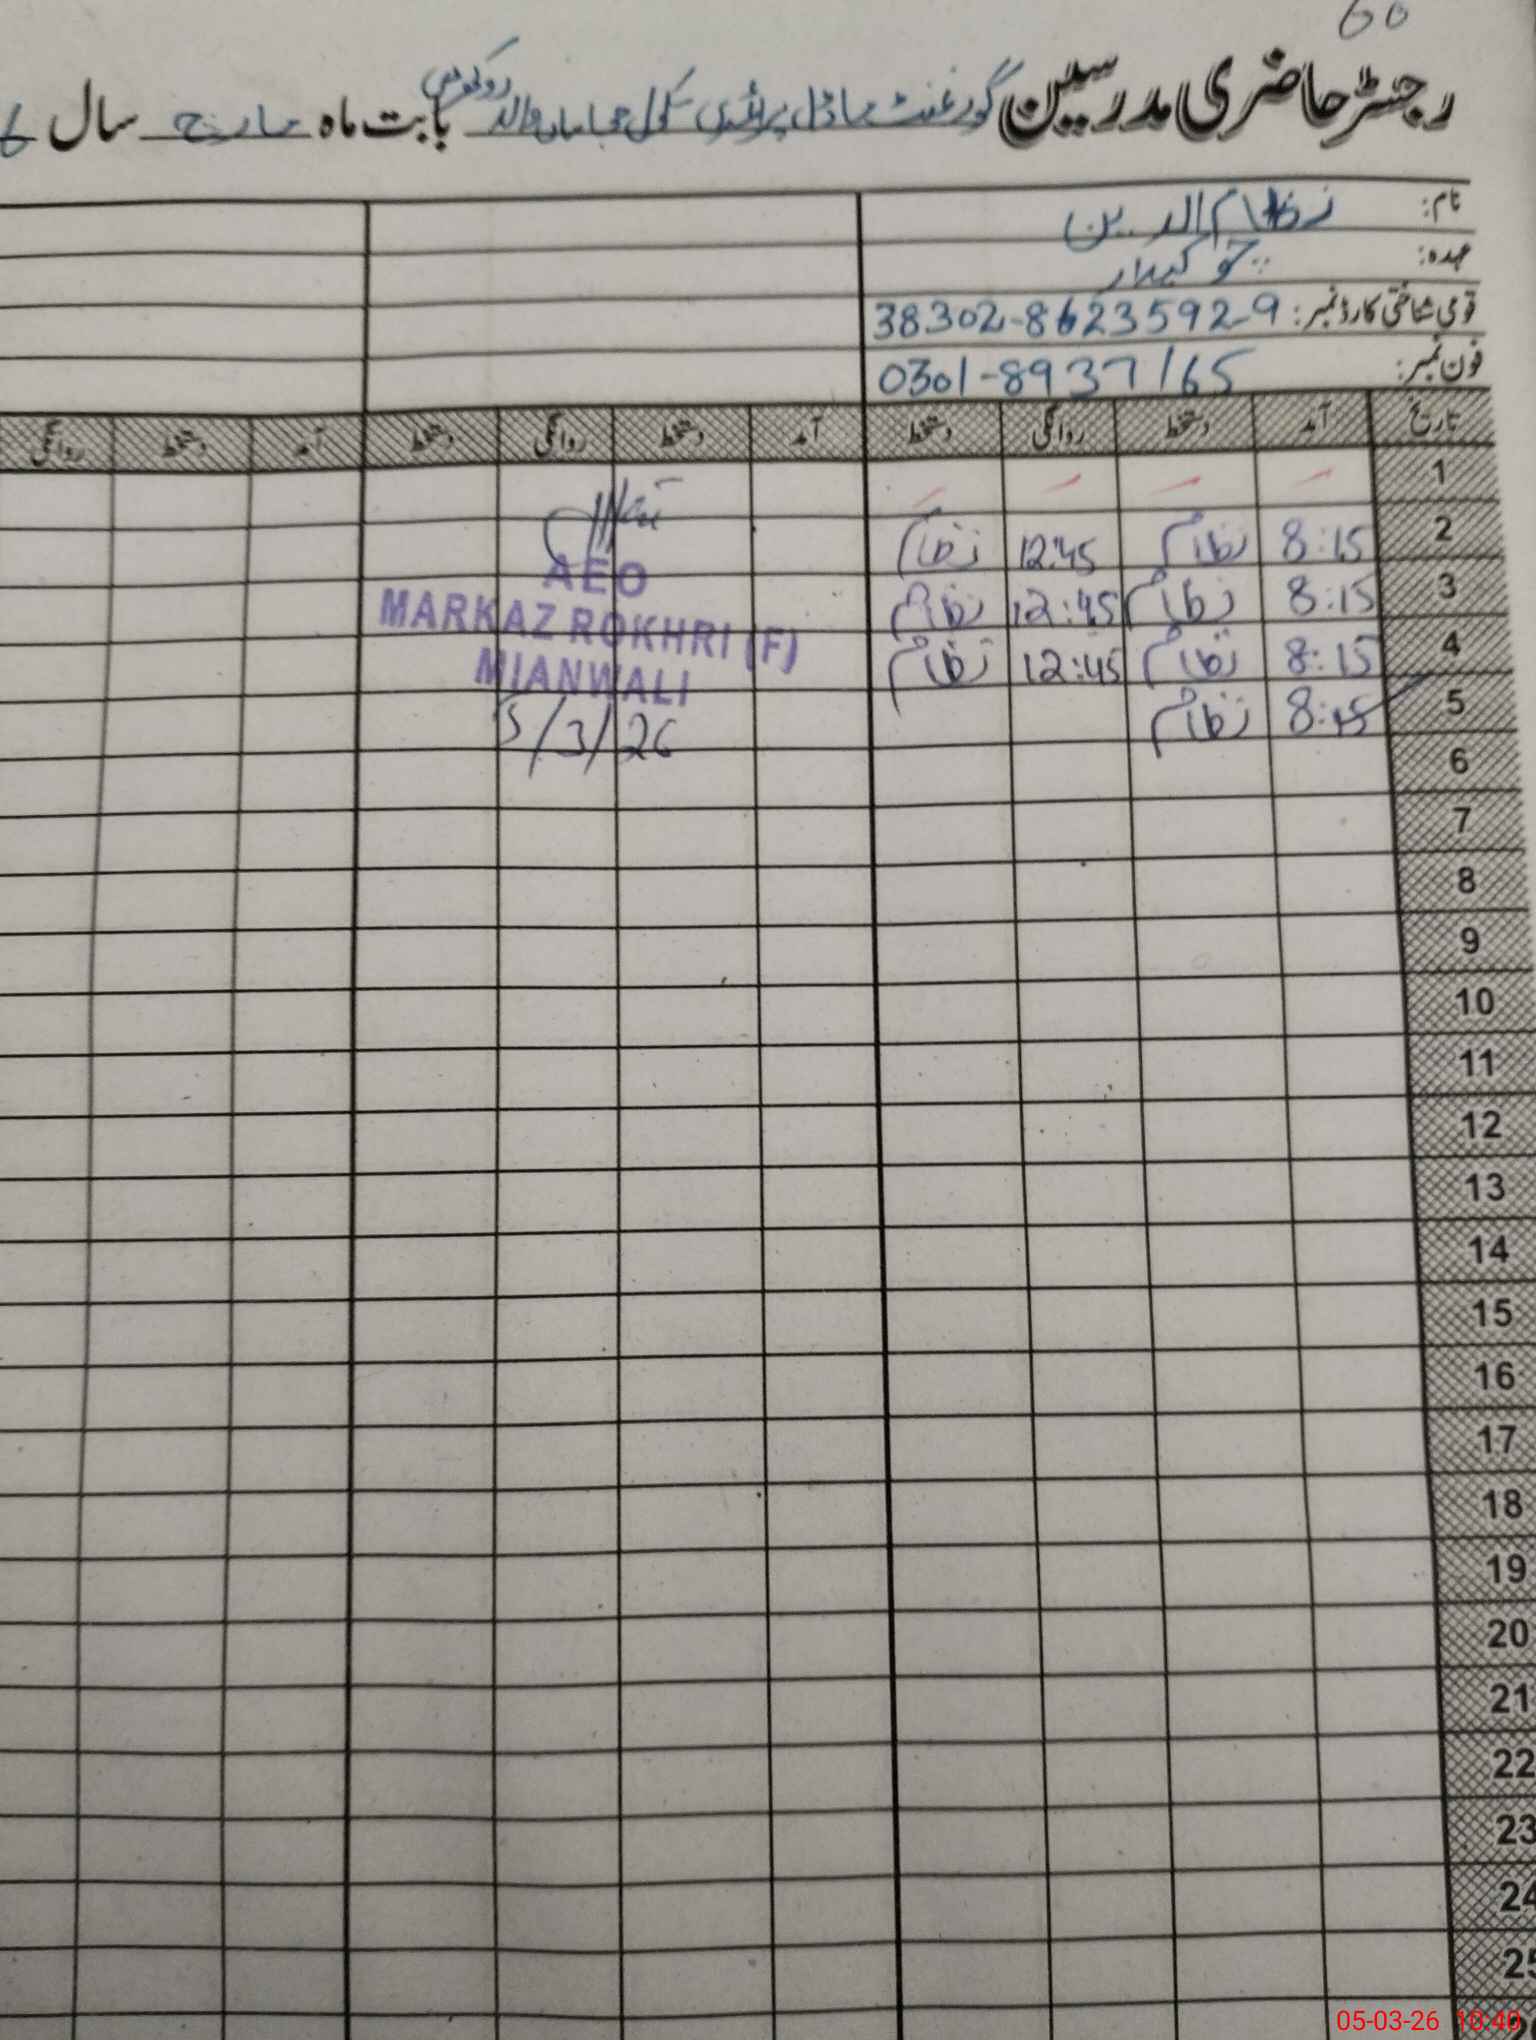 60
رجسٹر حاضری مدرسین گورنمنٹ ماڈل پرائمری سکول روکھڑی بابت ماہ مارچ سال 6
نام: نظام الدین
عہدہ: چوکیدار
قومی شناختی کارڈ نمبر: 38302-8623592-9
فون نمبر: 0301-8937165
تاریخ آمد دستخط روانگی دستخط آمد دستخط روانگی دستخط آمد دستخط روانگی
1
2 8:15 نظام 12:45 نظام
3 8:15 نظام 12:45 نظام
4 8:15 نظام 12:45 نظام
5 8:15 نظام
AEO
MARKAZ ROKHRI (F)
MIANWALI
5/3/26
6
7
8
9
10
11
12
13
14
15
16
17
18
19
20
21
22
23
24
25
05-03-26 10:40